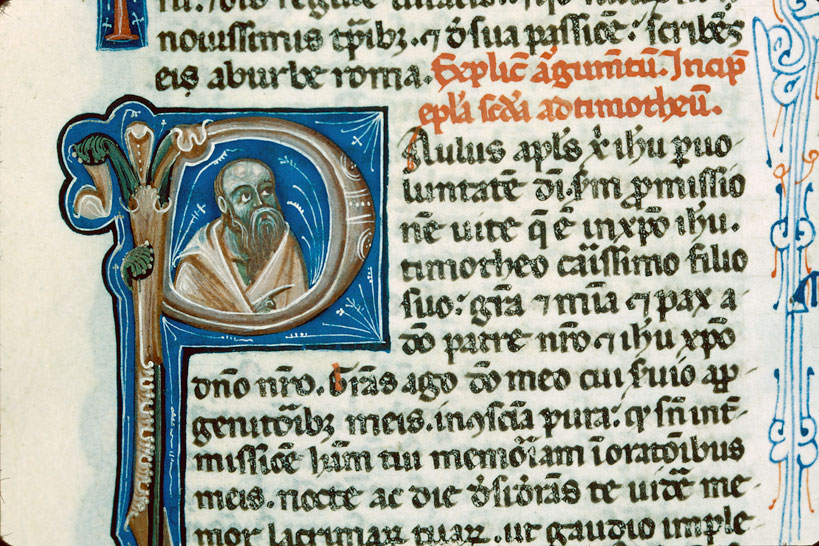 novissimus tp̄ibꝫ. ⁊ d̓ sua passiōe: scribēs
eis ab urbe roma. Explic̄ argum̄tū. Incip̄
ep̄la sc̄da ad timotheū.
Paulus apl̓s xp̄i ih̓u p̱ uo-
luntatē dī. s̄m ꝓmissio
nē uite q̄ ē in xp̄o ih̓u.
timotheo car̄issimo filio
suo: gr̄a ⁊ mīa ⁊ pax a
dō patre nr̄o ⁊ ih̓u xp̄o
dn̄o nr̄o. Gr̄as ago dō meo cui s̓uio a ꝓ-
genitor̄ibꝫ meis. in ꝯsciā pura: qꝛ sn̄ int̄-
missiōe ham̄ tui memor̄iam ī orat̄oibus
meis. nocte ac die d̓sid̓ās te uid̓e me-
mor lacrimaꝝ tuaꝝ. ut gaudio imple-